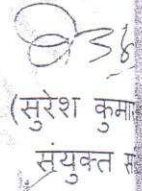 (सुरेश कुमा
संयुक्त स